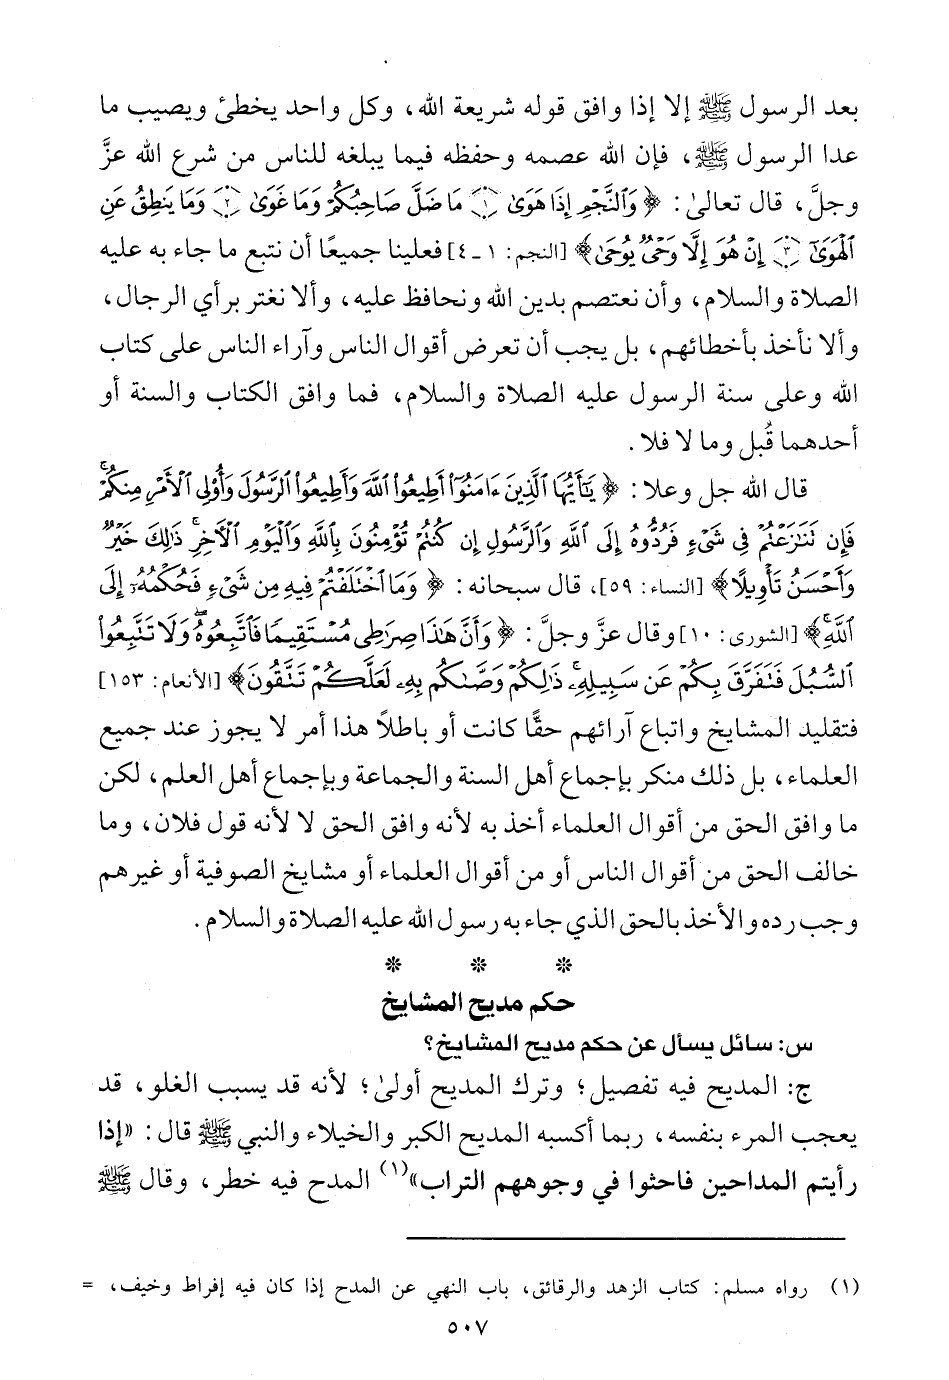 بعد الرسول ﷺ إلا إذا وافق قوله شريعة الله، وكل واحد يخطئ ويصيب ما
عدا الرسول ﷺ، فإن الله عصمه وحفظه فيما يبلغه للناس من شرع الله عزَّ
وجلَّ، قال تعالىٰ: ﴿وَٱلنَّجْمِ إِذَا هَوَىٰ ۝١ مَا ضَلَّ صَاحِبُكُمْ وَمَا غَوَىٰ ۝٢ وَمَا يَنطِقُ عَنِ
ٱلْهَوَىٰٓ ۝٣ إِنْ هُوَ إِلَّا وَحْىٌ يُوحَىٰ﴾ [النجم: ١ ـ ٤] فعلينا جميعًا أن نتبع ما جاء به عليه
الصلاة والسلام، وأن نعتصم بدين الله ونحافظ عليه، وألا نغتر برأي الرجال،
وألا نأخذ بأخطائهم، بل يجب أن تعرض أقوال الناس وآراء الناس على كتاب
الله وعلى سنة الرسول عليه الصلاة والسلام، فما وافق الكتاب والسنة أو
أحدهما قُبل وما لا فلا.
قال الله جل وعلا: ﴿يَٰٓأَيُّهَا ٱلَّذِينَ ءَامَنُوٓا۟ أَطِيعُوا۟ ٱللَّهَ وَأَطِيعُوا۟ ٱلرَّسُولَ وَأُو۟لِى ٱلْأَمْرِ مِنكُمْ ۖ
فَإِن تَنَٰزَعْتُمْ فِى شَىْءٍ فَرُدُّوهُ إِلَى ٱللَّهِ وَٱلرَّسُولِ إِن كُنتُمْ تُؤْمِنُونَ بِٱللَّهِ وَٱلْيَوْمِ ٱلْءَاخِرِ ۚ ذَٰلِكَ خَيْرٌ
وَأَحْسَنُ تَأْوِيلًا﴾ [النساء: ٥٩]، قال سبحانه: ﴿وَمَا ٱخْتَلَفْتُمْ فِيهِ مِن شَىْءٍ فَحُكْمُهُۥٓ إِلَى
ٱللَّهِ ۚ﴾ [الشورى: ١٠] وقال عزَّ وجلَّ: ﴿وَأَنَّ هَٰذَا صِرَٰطِى مُسْتَقِيمًا فَٱتَّبِعُوهُ ۖ وَلَا تَتَّبِعُوا۟
ٱلسُّبُلَ فَتَفَرَّقَ بِكُمْ عَن سَبِيلِهِۦ ۚ ذَٰلِكُمْ وَصَّىٰكُم بِهِۦ لَعَلَّكُمْ تَتَّقُونَ﴾ [الأنعام: ١٥٣]
فتقليد المشايخ واتباع آرائهم حقًّا كانت أو باطلاً هذا أمر لا يجوز عند جميع
العلماء، بل ذلك منكر بإجماع أهل السنة والجماعة وبإجماع أهل العلم، لكن
ما وافق الحق من أقوال العلماء أخذ به لأنه وافق الحق لا لأنه قول فلان، وما
خالف الحق من أقوال الناس أو من أقوال العلماء أو مشايخ الصوفية أو غيرهم
وجب رده والأخذ بالحق الذي جاء به رسول الله عليه الصلاة والسلام.
* * *
حكم مديح المشايخ
س: سائل يسأل عن حكم مديح المشايخ؟
ج: المديح فيه تفصيل؛ وترك المديح أولىٰ؛ لأنه قد يسبب الغلو، قد
يعجب المرء بنفسه، ربما أكسبه المديح الكبر والخيلاء والنبي ﷺ قال: «إذا
رأيتم المداحين فاحثوا في وجوههم التراب»(١) المدح فيه خطر، وقال ﷺ
(١) رواه مسلم: كتاب الزهد والرقائق، باب النهي عن المدح إذا كان فيه إفراط وخيف، =
٥٠٧